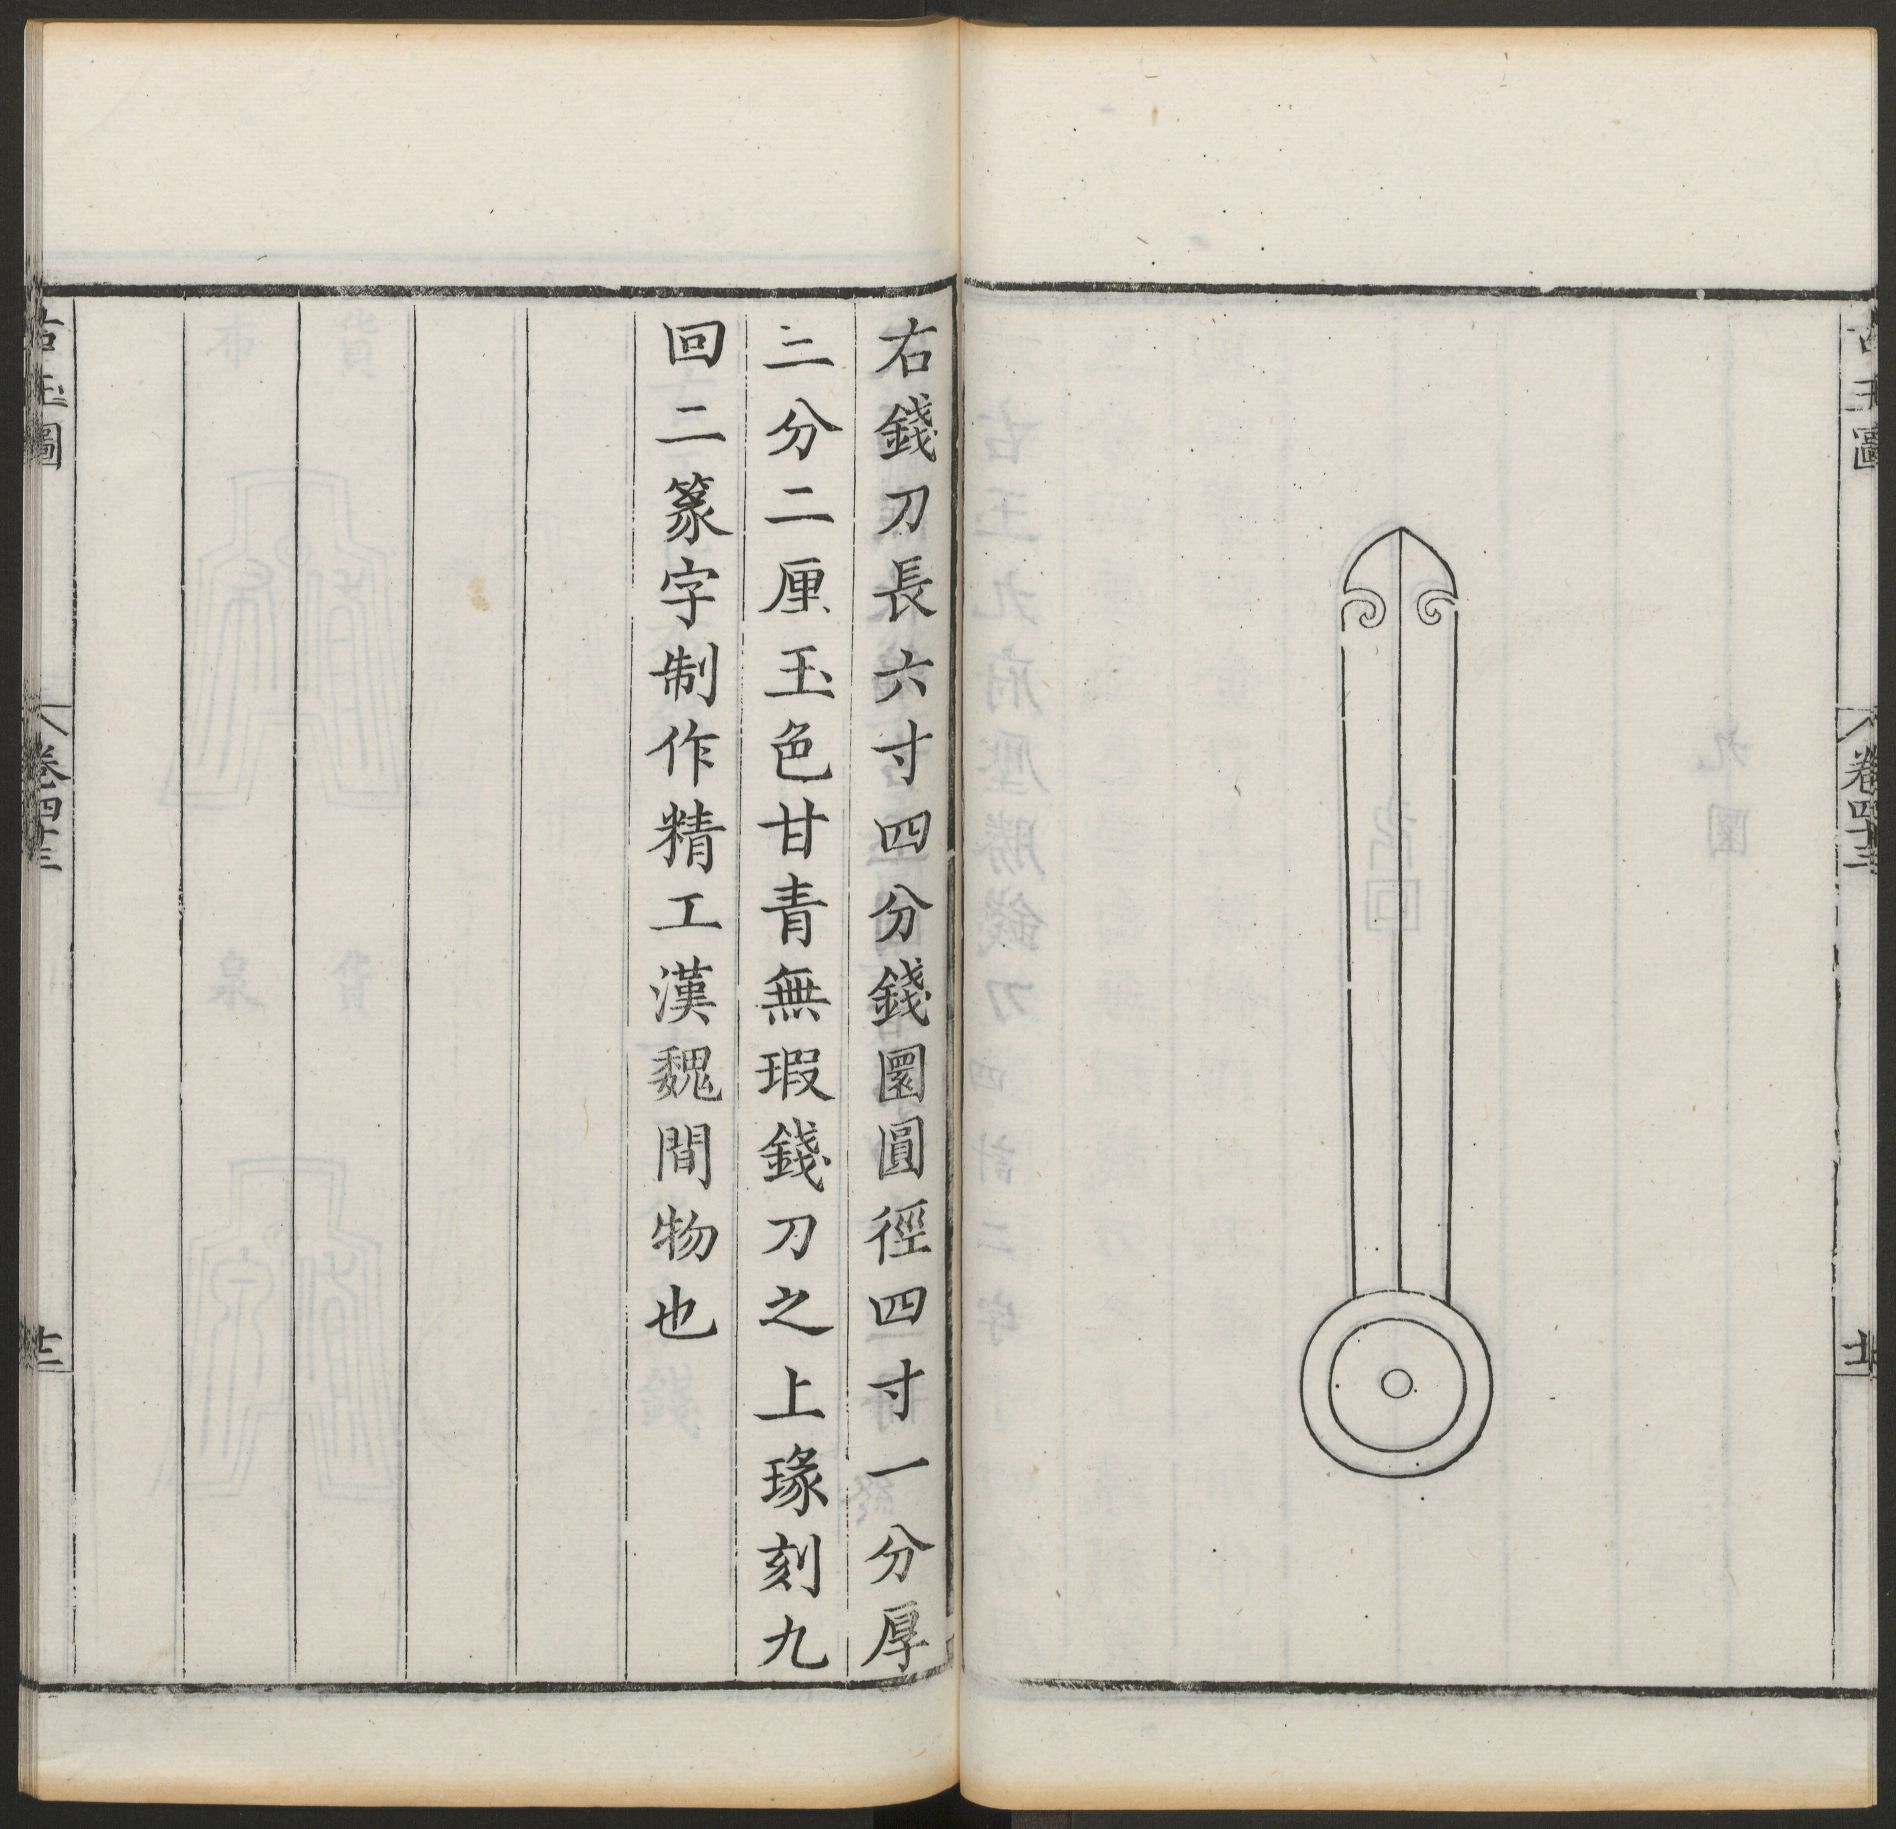 古玉圖
卷四十三
右錢刀長六寸四分錢圜圓徑四寸一分厚
三分二厘玉色甘青無瑕錢刀之上瑑刻九
回二篆字制作精工漢魏間物也
古玉圖
卷四十三